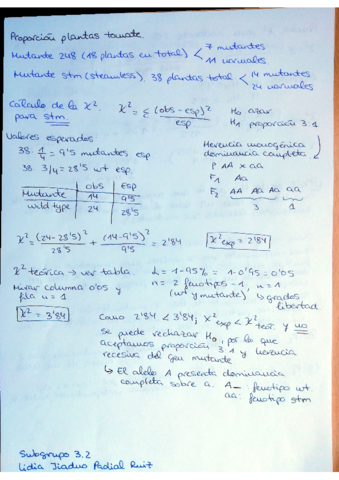 Proporción plantas tomate.
Mutante 248 (18 plantas en total) < 7 mutantes
11 normales
Mutante stm (steamless). 38 plantas total < 14 mutantes
24 normales
Cálculo de la X².
para stm.
X² = Σ (obs - esp)² / esp
H₀ azar.
H₁ proporción 3:1
Valores esperados
38 · 1/4 = 9'5 mutantes esp
38 · 3/4 = 28'5 wt esp.
obs | esp
Mutante | 14 | 9'5
wild type | 24 | 28'5
Herencia monogénica
dominancia completa.
P AA x aa
F₁ Aa
F₂ AA Aa Aa aa
3 1
X² = (24-28'5)² / 28'5 + (14-9'5)² / 9'5 = 2'84
X²exp = 2'84
X² teórica → ver tabla.
Mirar columna 0'05 y
fila n = 1
X² = 3'84
α = 1-95% = 1-0'95 = 0'05
n = 2 fenotipos - 1, n = 1
(wt y mutante) ↳ grados
libertad.
Como 2'84 < 3'84; X²exp < X²teor. y no
se puede rechazar H₀, por lo que
aceptamos proporción 3:1 y herencia
recesiva del gen mutante
↳ El alelo A presenta dominancia
completa sobre a. A_: fenotipo wt.
aa: fenotipo stm
Subgrupo 3.2
Lidia Jiaduo Padial Ruiz